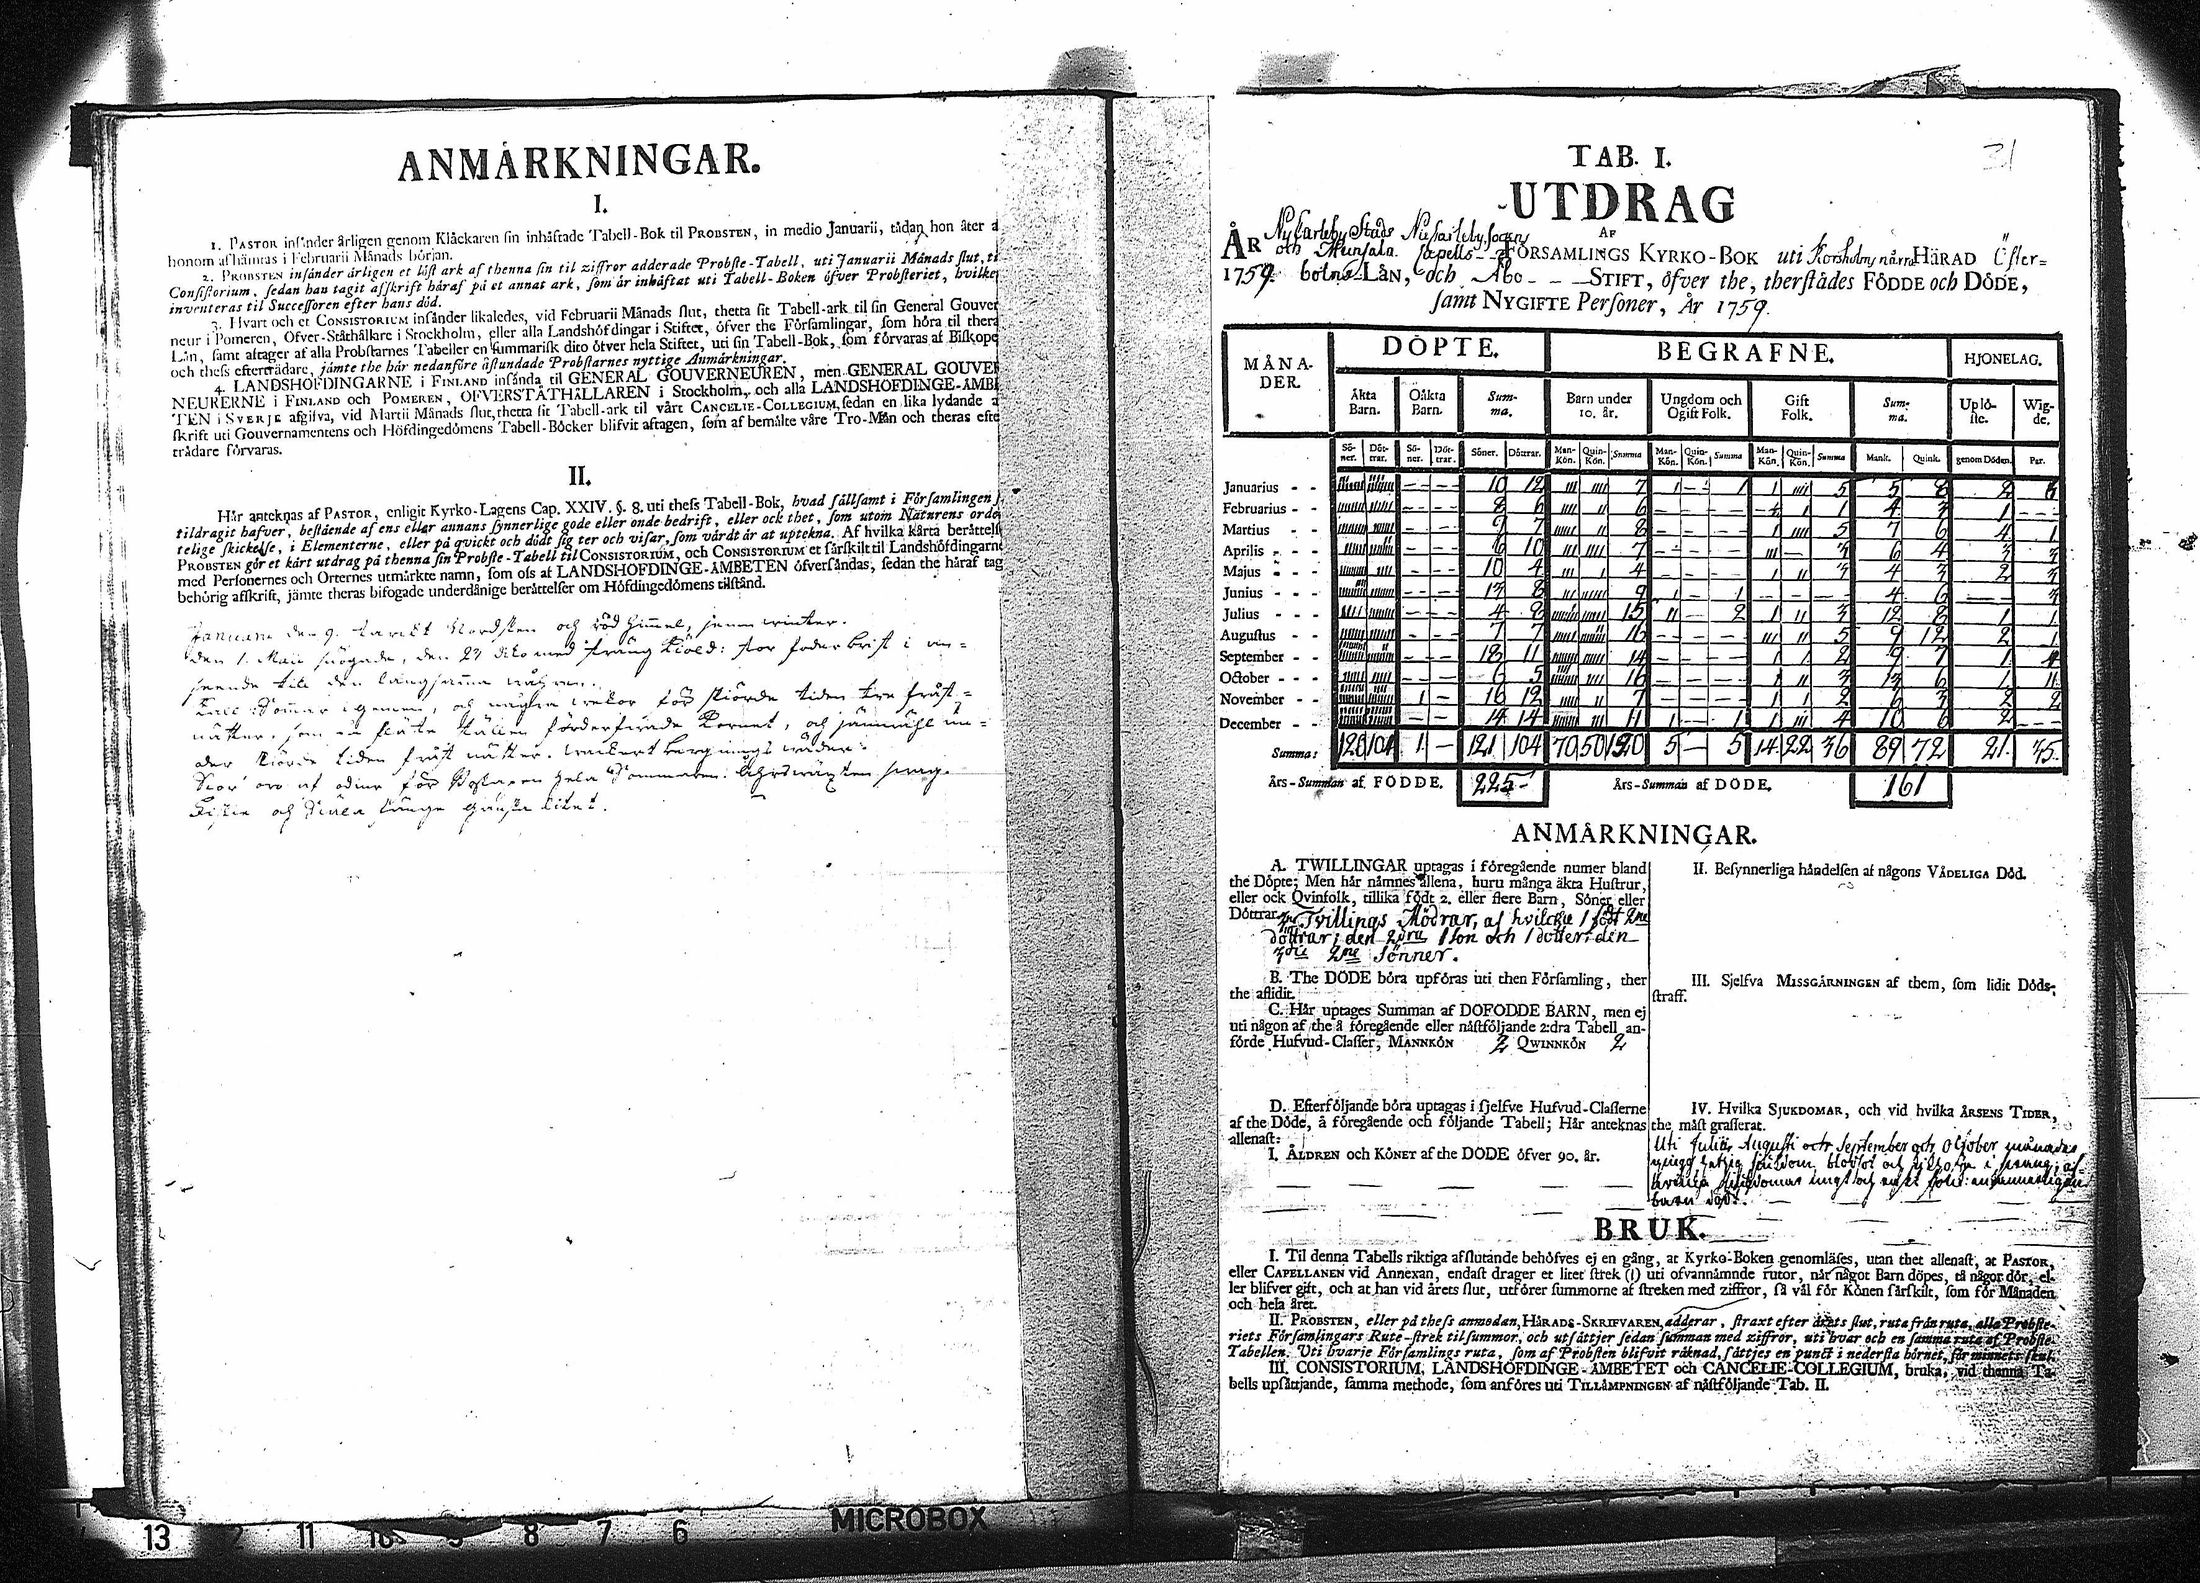 ANMÄRKNINGAR.
I.
1. PASTOR insänder årligen genom Klåckaren sin inhäftade Tabell-Bok til PROBSTEN, in medio Januarii, tådan hon åter a
honom afhämtas i Februarii Månads början.
2. PROBSTEN insänder årligen et löst ark af thenna sin til ziffror adderade Probste-Tabell, uti Januarii Månads slut, ti
Consistorium, sedan han tagit afskrift häraf på et annat ark, som är inhäftat uti Tabell-Boken öfver Probsteriet, hvilke
inventeras til Successoren efter hans död.
3. Hvart och et CONSISTORIUM insänder likaledes, vid Februarii Månads slut, thetta sit Tabell-ark til sin General Gouver
neur i Pomeren, Öfver-Ståthållare i Stockholm, eller alla Landshöfdingar i Stiftet, öfver the Församlingar, som höra til thera
Län, samt aftager af alla Probstarnes Tabeller en summarisk dito öfver hela Stiftet, uti sin Tabell-Bok, som förvaras af Biskope
och thess efterträdare, jämte the här nedanföre åstundade Probstarnes nyttige Anmärkningar.
4. LANDSHÖFDINGARNE i FINLAND insända til GENERAL GOUVERNEUREN, men GENERAL GOUVER
NEURERNE i FINLAND och POMEREN, ÖFVERSTÅTHÅLLAREN i Stockholm, och alla LANDSHÖFDINGE-ÄMBE
TEN i SVERJE afgifva, vid Martii Månads slut, thetta sit Tabell-ark til vårt CANCELIE-COLLEGIUM, sedan en lika lydande a
skrift uti Gouvernamentens och Höfdingedömens Tabell-Böcker blifvit aftagen, som af bemälte våre Tro-Män och theras efte
trädare förvaras.
II.
Här antecknas af PASTOR, enligit Kyrko-Lagens Cap. XXIV. §. 8. uti thess Tabell-Bok, hvad sällsamt i Församlingen
tildragit hafver, bestående af ens eller annans synnerlige gode eller onde bedrift, eller ock thet, som utom Naturens ordo
telige skickelse, i Elementerne, eller på qvickt och dödt sig ter och visar, som värdt är at uptekna. Af hvilka kärta berättels
PROBSTEN gör et kårt utdrag på thenna sin Probste-Tabell til CONSISTORIUM, och CONSISTORIUM et särskilt til Landshöfdingarne
med Personernes och Orternes utmärkte namn, som oss af LANDSHÖFDINGE-ÄMBETEN öfversändas, sedan the häraf tag
behörig afskrift, jämte theras bifogade underdånige berättelser om Höfdingedömens tilstånd.
Januarii den 9. starkt Nordsken och röd himmel, jemn winter.
den 1. Maii snögade, den 27 dito med sträng kiöld: stor foderbrist i an=
seende till den långsamma wåren.
Kall Sommar igenom, och några weckor för skiörde tiden tre fråst=
nätter, som på släta ställen förderfwade Kornet, och jämwähl un=
der skiörde tiden fråst nätter. wackert bergnings wäder:
Stor oro af odiur för Boskapen hela Sommaren. Åhrswäxten swag.
Fiske och Siäla fånge ganska litet.
31
TAB. I.
UTDRAG
AF
ÅR Ny Carleby Stads Ny Carleby Sogns
och Munsala Capells FÖRSAMLINGS KYRKO-BOK uti Korsholms norra HÄRAD Öster=
1759. botns LÄN, och Åbo STIFT, öfver the, therstädes FÖDDE och DÖDE,
samt NYGIFTE Personer, År 1759.
MÅNA-DER. DÖPTE. BEGRAFNE. HJONELAG.
Äkta Barn. Oäkta Barn. Summa. Barn under 10. år. Ungdom och Ogift Folk. Gift Folk. Summa. Uplöste. Wigde.
Söner. Döttrar. Söner. Döttrar. Söner. Döttrar. Man-Kön. Quin-Kön. Summa Man-Kön. Quin-Kön. Summa Man-Kön. Quin-Kön. Summa Mank. Quink. genom Döden. Par.
Januarius - - 10 12 7 1 5 5 8 2
Februarius - - 8 6 6 1 4 3 1
Martius - - 9 7 8 5 7 6 4 1
Aprilis - - 6 10 7 3 6 4 3 3
Majus - - 10 4 4 3 4 3 2 3
Junius - - 13 8 9 1 4 6 3
Julius - - 4 8 15 2 3 12 8 1 1
Augustus - - 7 7 16 5 9 12 2 1
September - - 18 11 14 2 9 7 1 4
October - - 6 5 16 3 13 6 1 11
November - - 1 16 12 7 2 6 3 2 2
December - - 14 14 11 1 4 10 6 2
Summa: 120 104 1 - 121 104 70 50 120 5 - 5 14 22 36 89 72 21. 35.
Års-Summan af FÖDDE. 225- Års-Summan af DÖDE. 161
ANMÄRKNINGAR.
A. TWILLINGAR uptagas i föregående numer bland
the Döpte; Men här nämnes allena, huru många äkta Hustrur,
eller ock Qvinfolk, tillika födt 2. eller flere Barn, Söner eller
Döttrar. 3ne Tvillings Mödrar, af hvilcka 1 födt 2ne
döttrar; den 2dra 1 son och 1 dotter; den
3die 2ne Sönner.
B. The DÖDE böra upföras uti then Församling, ther
the aflidit.
C. Här uptages Summan af DÖDFÖDDE BARN, men ej
uti någon af the å föregående eller nästföljande 2:dra Tabell an-
förde Hufvud-Classer, MANNKÖN 2 QWINNKÖN 2
D. Efterföljande böra uptagas i sjelfve Hufvud-Classerne
af the Döde, å föregående och följande Tabell; Här antecknas
allenast:
I. ÅLDREN och KÖNET af the DÖDE öfver 90. år.
II. Besynnerliga händelsen af någons VÅDELIGA Död.
III. Sjelfva MISSGÄRNINGEN af them, som lidit Döds-
straff.
IV. Hvilka SJUKDOMAR, och vid hvilka ÅRSENS TIDER,
the mäst grasserat.
Uti Julii, Augusti och September och October månader
barn dödt.
BRUK.
I. Til denna Tabells riktiga afslutande behöfves ej en gång, at Kyrko-Boken genomläses, utan thet allenast, at PASTOR,
eller CAPELLANEN vid Annexan, endast drager et litet strek (I) uti ofvannämnde rutor, når något Barn döpes, tå någor dör, el-
ler blifver gift, och at han vid årets slut, utförer summorne af streken med ziffror, så väl för Könen särskilt, som för Månaden
och hela året.
II. PROBSTEN, eller på thess anmodan, HÄRADS-SKRIFVAREN, adderar, straxt efter årets slut, ruta från ruta, alla Probste-
riets Församlingars Rute-strek til summor, och utsättjer sedan summan med ziffror, uti hvar och en samma ruta af Probste-
Tabellen. Uti hvarje Församlings ruta, som af Probsten blifvit räknad, sättjes en punct i nedersta hörnet, för minnets skul.
III. CONSISTORIUM, LANDSHÖFDINGE-ÄMBETET och CANCELIE-COLLEGIUM, bruka, vid thenna Ta-
bells upsättjande, samma methode, som anföres uti TILLÄMPNINGEN af nästföljande Tab. II.
13 2 11 10 9 8 7 6
MICROBOX